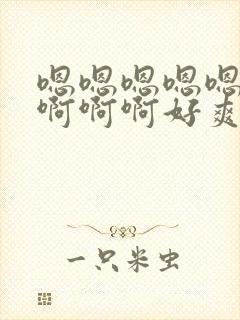 嗯嗯嗯嗯嗯
啊啊啊好爽
一只米虫